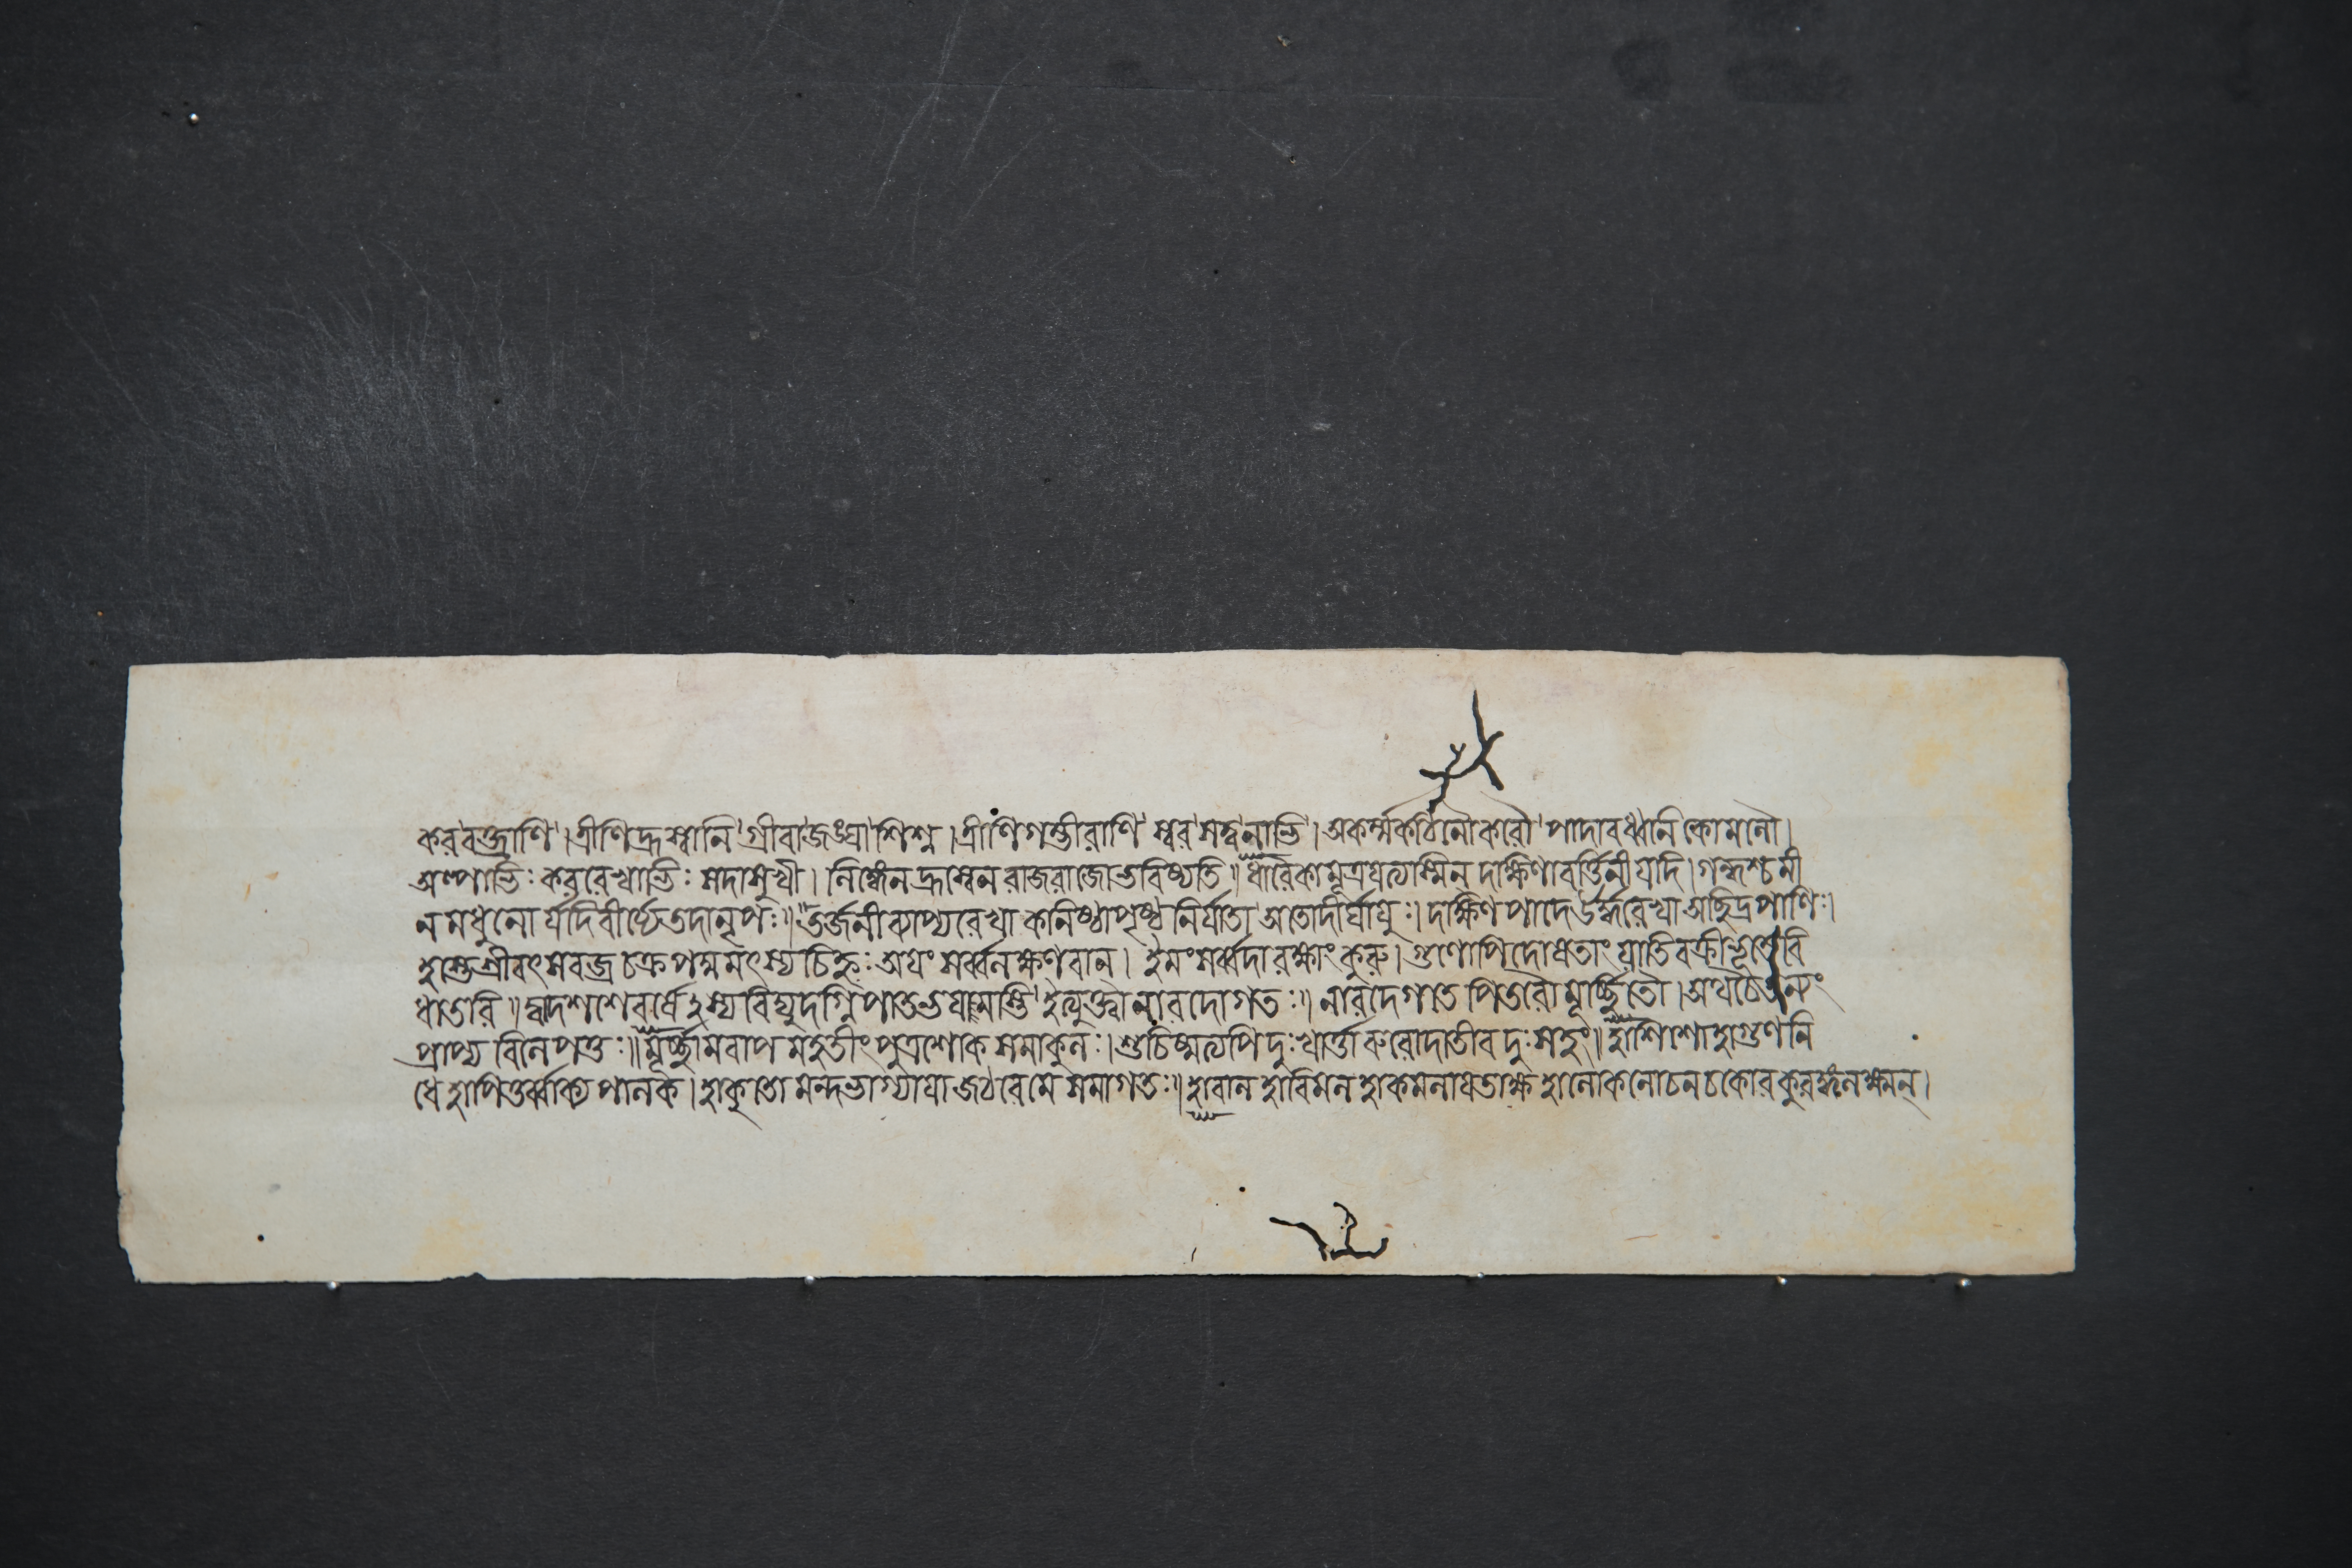 করবক্ত্রাণি।ত্রীণিহ্রস্বানি গ্রীবাজঙ্ঘাশিশ্ন।ত্রীণিগম্ভীরাণি স্বরসত্ত্বনাভি।অকর্ম্মকঠিনৌকরৌ পাদাবধ্বানি কোমলৌ।
অস্পাভিঃ কররেখাভিঃ সদাসুখী। লিঙ্গেন হ্রস্বেন রাজরাজোভবিষ্যতি॥ধারৈকামূত্রপতত্যস্মিন দক্ষিণাবর্ত্তিনীযদি।গন্ধশ্চমী
নমধুনো র্যদিবীর্য্যেতদানৃপঃ॥তর্জ্জনীব্যাপ্যরেখা কনিষ্ঠাপৃষ্ঠ নির্যাতা অতোদীর্ঘায়ুঃ।দক্ষিণপাদেঊর্দ্ধরেখা অছিদ্রপাণিঃ।
হস্তেশ্রীবৎসবজ্র চক্রপদ্মমৎস্য চিহ্নঃ অয়ং সর্ব্বলক্ষণবান। ইমংসর্ব্বদারক্ষাং কুরু।গুণোপিদোষতাং যাতিবক্রীভূতেবি
ধাতরি॥দ্বাদশশেবর্ষেঽস্যবিদ্যুদগ্নিপাতভয়মাস্তি ইত্যুক্ত্বানারদোগতঃ॥ নারদেগতে পিতরৌমূর্চ্ছিতৌ।অথচৈতন্যং
প্রাপ্য বিলেপতুঃ॥মূর্চ্ছামবাপ মহতীং পুত্রশোক সমাকুলঃ।শুচিষ্মত্যপি দুঃখার্ত্তা রুরোদাতীব দুঃসহং॥হাশিশোহাগুণনি
ধে হাপিতুর্ব্বাক্য পালক।হাকুতো মন্দভাগ্যায়া জঠরেমে সমাগতঃ॥হাবাল হাবিমল হাকমলায়তাক্ষ হালোকলোচনচকোর কুরঙ্গলক্ষ্মন্।